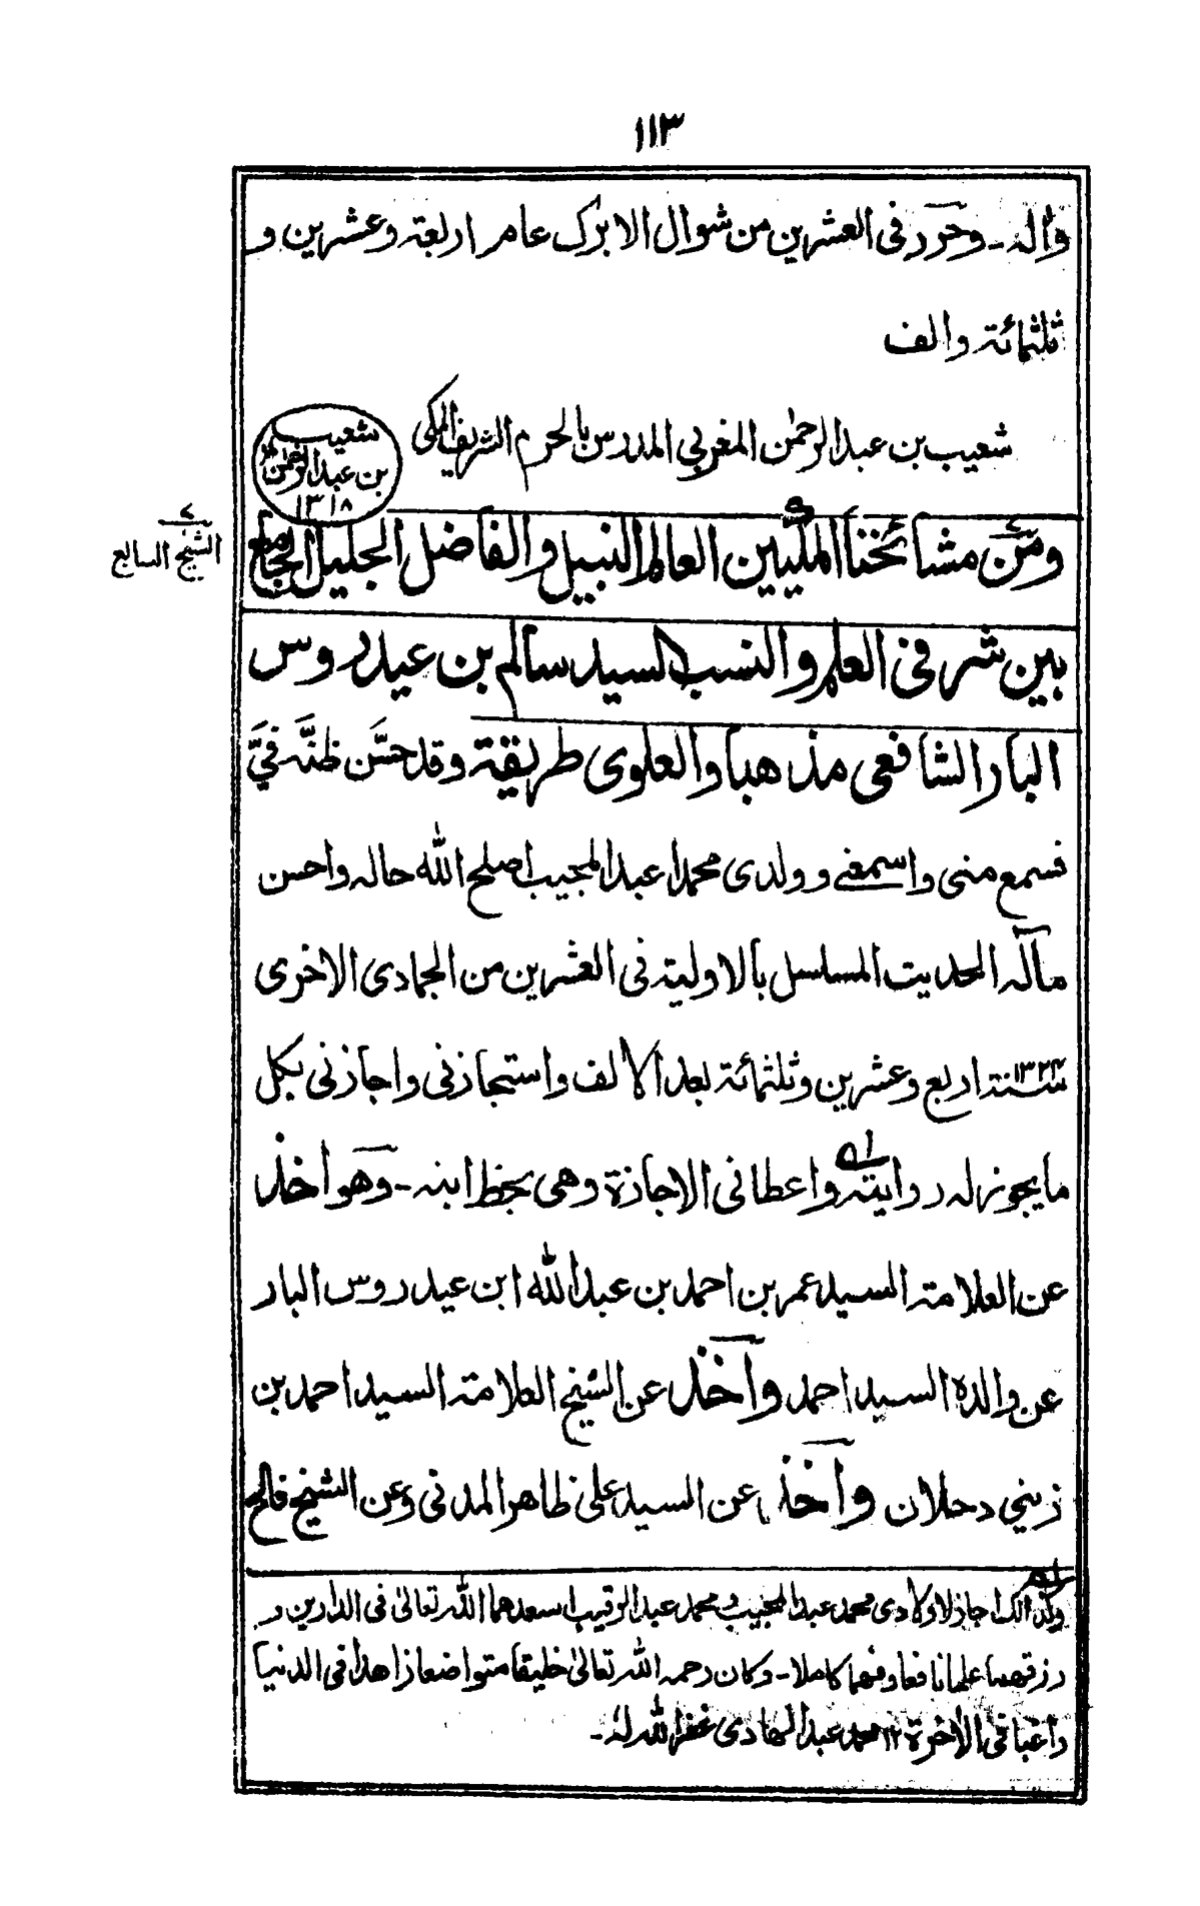 ١١٣
وآله ـ وحرر فى العشرين من شوال الابرك عام اربعة وعشرين و
ثلثمائة والف
شعيب بن عبد الرحمٰن المغربي المدرس بالحرم الشريف المكى
شعيب
بن عبد الرحمٰن
١٣١٨
٧
الشيخ السابع
ومن مشائخنا المكيين العالم النبيل والفاضل الجليل الجامع
بين شرفى العلم والنسب السيد سالم بن عيدروس
البار الشافعى مذهبا والعلوى طريقة وقد حسَّن ظنَّه فيَّ
فسمع منى واسمعنے وولدى محمدا عبد المجيب اصلح الله حاله واحسن
مآله الحديث المسلسل بالاولية فى العشرين من الجمادى الاخرى
سنة ١٣٢٤ اربع وعشرين وثلثمائة بعد الالف واستجازنى واجازنى بكل
مايجوز له روايته واعطانى الاجازة وهى بخط ابنه ـ وهو اخذ
عن العلامة السيد عمر بن احمد بن عبد الله ابن عيدروس البار
عن والده السيد احمد واخذ عن الشيخ العلامة السيد احمد بن
زيني دحلان واخذ عن السيد على ظاهر المدنى وعن الشيخ فالح
وكذالك اجاز لاولادى محمد عبد المجيب ومحمد عبد الرقيب اسعدهما الله تعالىٰ فى الدارين و
رزقهما علما نافعا وفهما كاملا ـ وكان رحمه الله تعالىٰ خليقا متواضعا زاهدا فى الدنيا
راغبا فى الاخرة ١٢ محمد عبد الهادى غفر الله له ـ